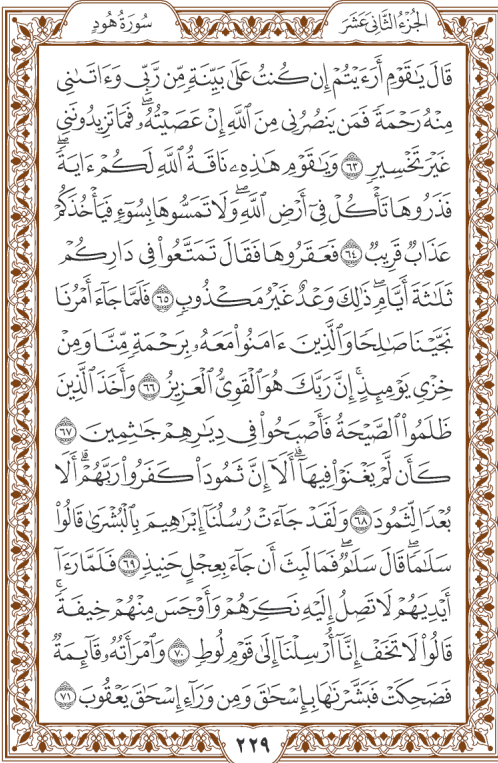 الجُزْءُ الثَّانِى عَشَرَ
سُورَةُ هُودٍ
قَالَ يَٰقَوْمِ أَرَءَيْتُمْ إِن كُنتُ عَلَىٰ بَيِّنَةٍ مِّن رَّبِّى وَءَاتَىٰنِى
مِنْهُ رَحْمَةً فَمَن يَنصُرُنِى مِنَ ٱللَّهِ إِنْ عَصَيْتُهُۥ ۖ فَمَا تَزِيدُونَنِى
غَيْرَ تَخْسِيرٍ ٦٣ وَيَٰقَوْمِ هَٰذِهِۦ نَاقَةُ ٱللَّهِ لَكُمْ ءَايَةً ۖ
فَذَرُوهَا تَأْكُلْ فِىٓ أَرْضِ ٱللَّهِ ۖ وَلَا تَمَسُّوهَا بِسُوٓءٍ فَيَأْخُذَكُمْ
عَذَابٌ قَرِيبٌ ٦٤ فَعَقَرُوهَا فَقَالَ تَمَتَّعُوا۟ فِى دَارِكُمْ
ثَلَٰثَةَ أَيَّامٍ ۖ ذَٰلِكَ وَعْدٌ غَيْرُ مَكْذُوبٍ ٦٥ فَلَمَّا جَآءَ أَمْرُنَا
نَجَّيْنَا صَٰلِحًا وَٱلَّذِينَ ءَامَنُوا۟ مَعَهُۥ بِرَحْمَةٍ مِّنَّا وَمِنْ
خِزْىِ يَوْمِئِذٍ ۗ إِنَّ رَبَّكَ هُوَ ٱلْقَوِىُّ ٱلْعَزِيزُ ٦٦ وَأَخَذَ ٱلَّذِينَ
ظَلَمُوا۟ ٱلصَّيْحَةُ فَأَصْبَحُوا۟ فِى دِيَٰرِهِمْ جَٰثِمِينَ ٦٧
كَأَن لَّمْ يَغْنَوْا۟ فِيهَآ ۗ أَلَآ إِنَّ ثَمُودَا۟ كَفَرُوا۟ رَبَّهُمْ ۗ أَلَا
بُعْدًا لِّثَمُودَ ٦٨ وَلَقَدْ جَآءَتْ رُسُلُنَآ إِبْرَٰهِيمَ بِٱلْبُشْرَىٰ قَالُوا۟
سَلَٰمًا ۖ قَالَ سَلَٰمٌ ۖ فَمَا لَبِثَ أَن جَآءَ بِعِجْلٍ حَنِيذٍ ٦٩ فَلَمَّا رَءَآ
أَيْدِيَهُمْ لَا تَصِلُ إِلَيْهِ نَكِرَهُمْ وَأَوْجَسَ مِنْهُمْ خِيفَةً ۚ
قَالُوا۟ لَا تَخَفْ إِنَّآ أُرْسِلْنَآ إِلَىٰ قَوْمِ لُوطٍ ٧٠ وَٱمْرَأَتُهُۥ قَآئِمَةٌ
فَضَحِكَتْ فَبَشَّرْنَٰهَا بِإِسْحَٰقَ وَمِن وَرَآءِ إِسْحَٰقَ يَعْقُوبَ ٧١
٢٢٩